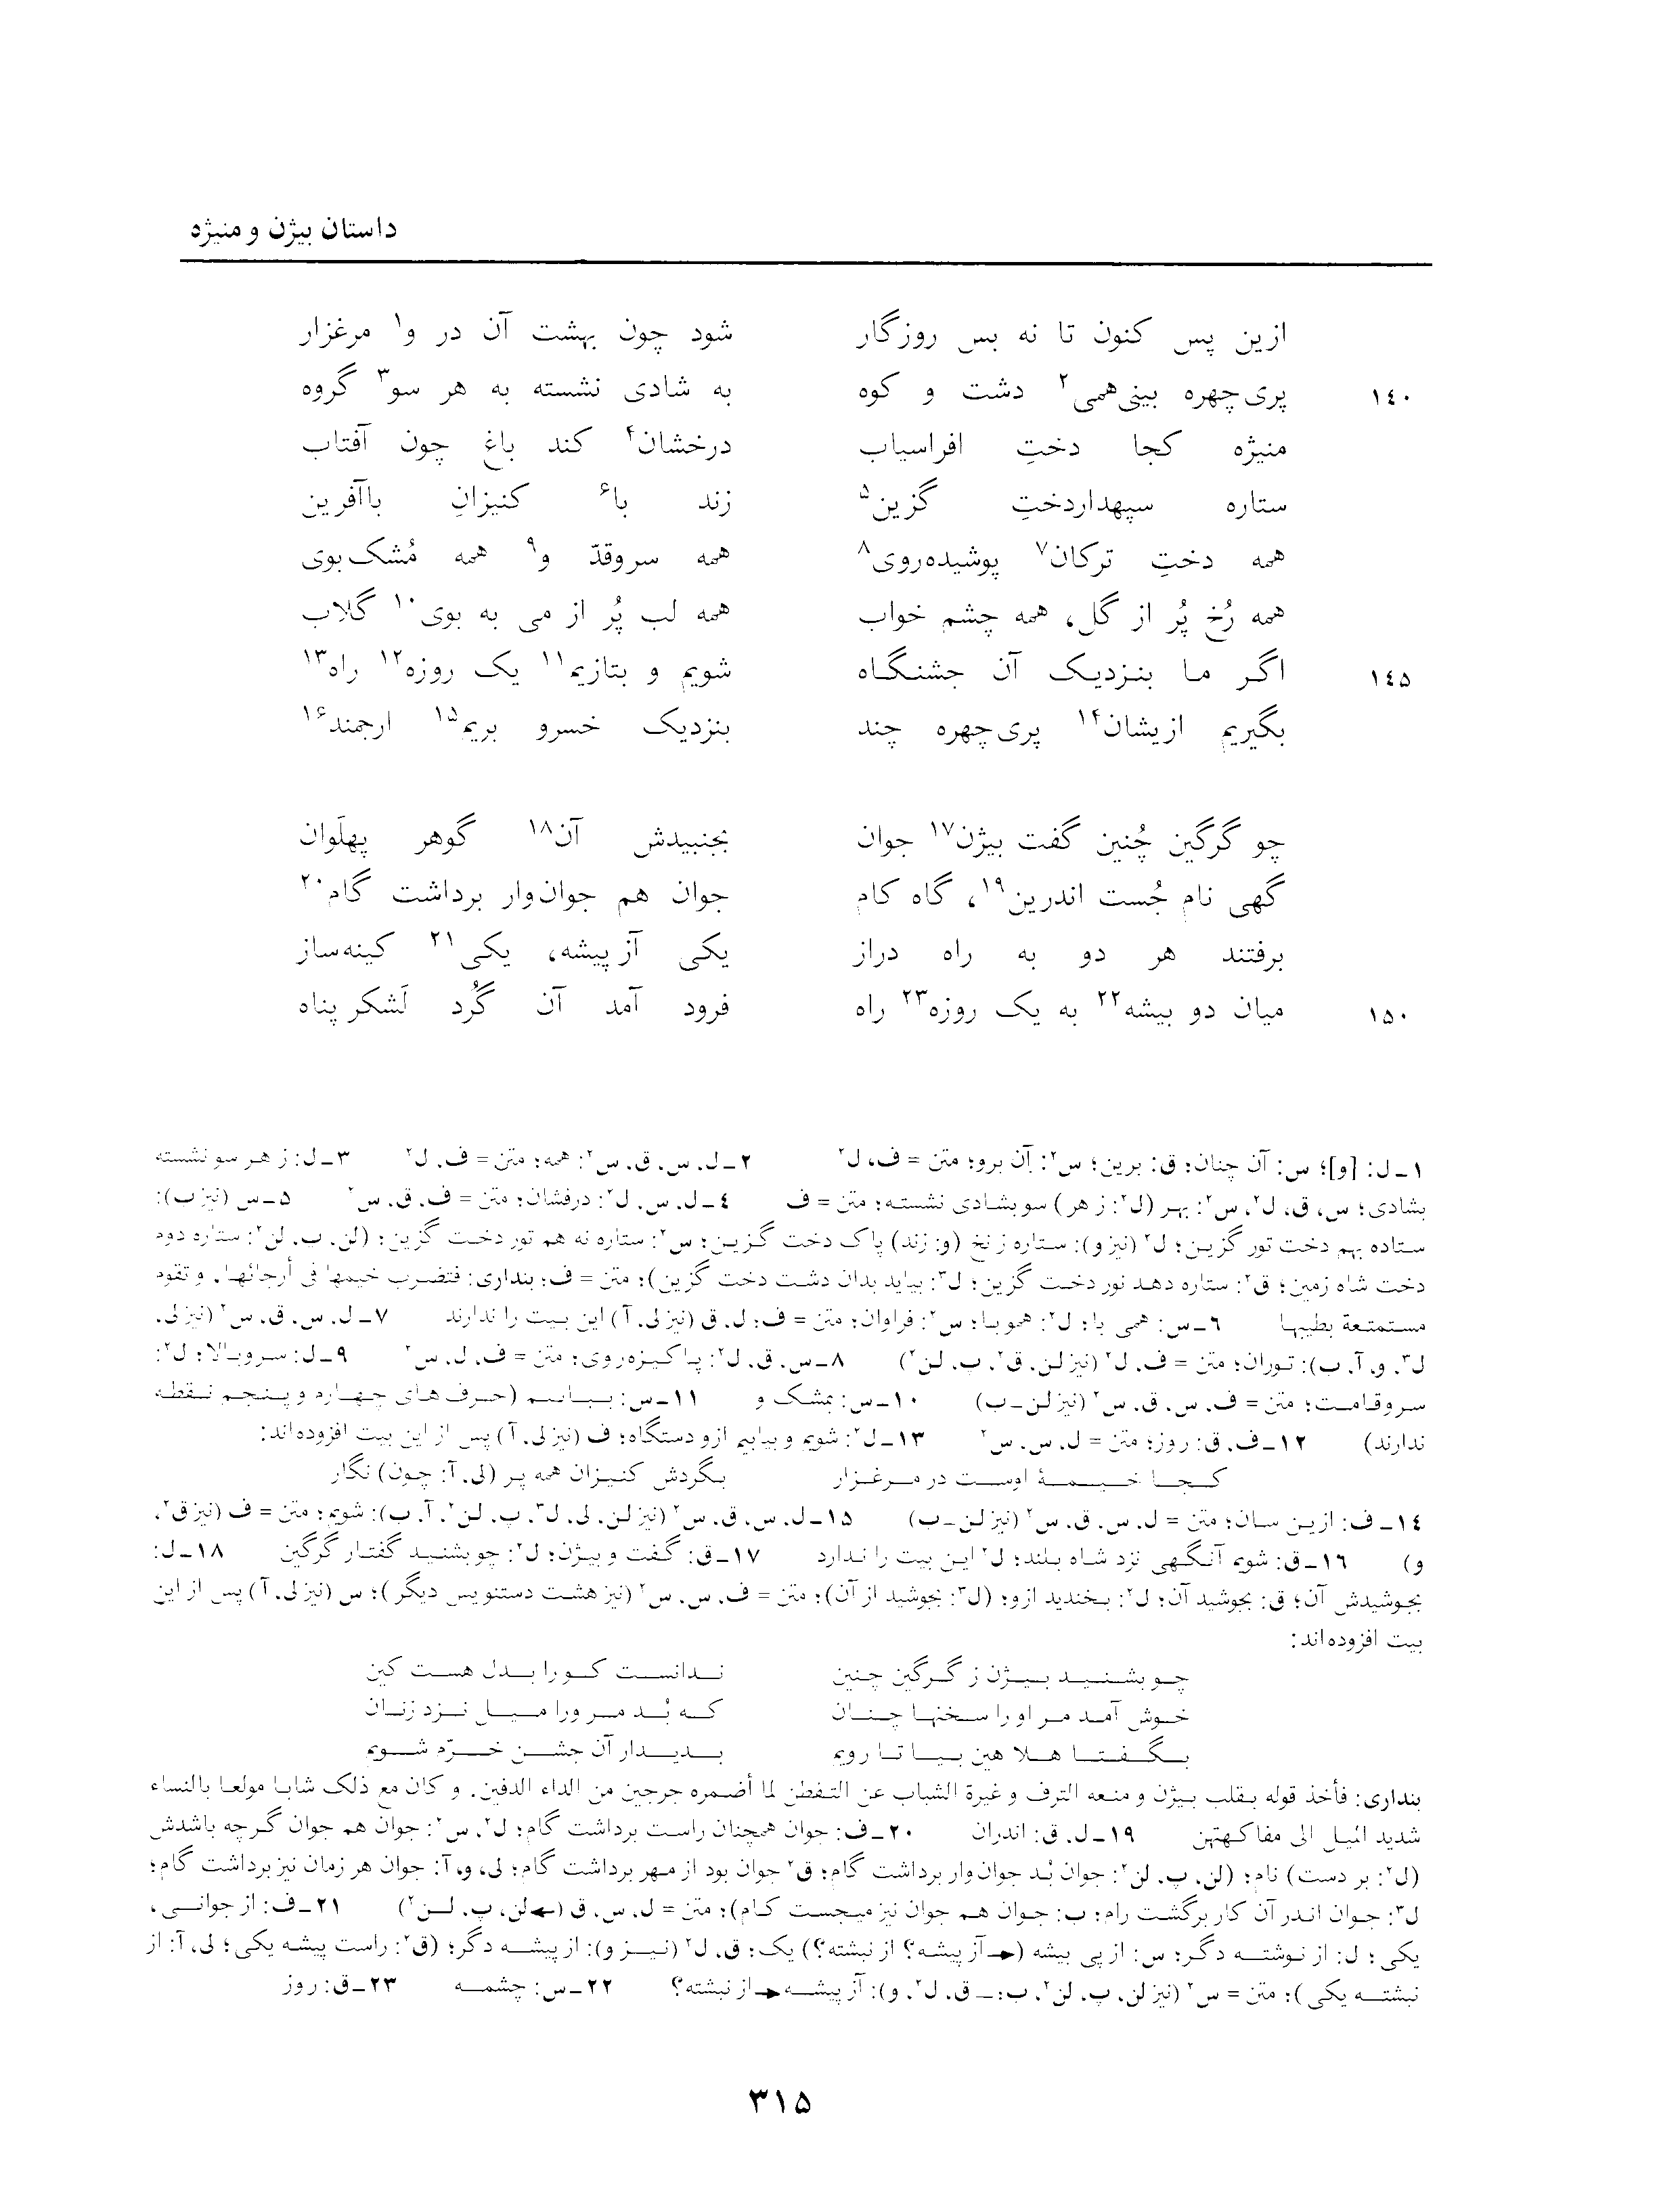 داستان بیژن و منیژه
ازین پس کنون تا نه بس روزگار شود چون بهشت آن در و۱ مرغزار
۱٤۰ پری‌چهره بینی‌همی۲ دشت و کوه به شادی نشسته به هر سو۳ گروه
منیژه کجا دختِ افراسیاب درخشان۴ کند باغ چون آفتاب
ستاره سپهداردختِ گزین۵ زند با۶ کنیزانِ باآفرین
همه دختِ ترکان۷ پوشیده‌روی۸ همه سروقدّ و۹ همه مُشک‌بوی
همه رُخ پُر از گل، همه چشم خواب همه لب پُر از می به بوی۱۰ گلاب
۱٤۵ اگر ما بنزدیک آن جشنگاه شویم و بتازیم۱۱ یک روزه۱۲ راه۱۳
بگیریم ازیشان۱۴ پری‌چهره چند بنزدیک خسرو بریم۱۵ ارجمند۱۶
چو گرگین چُنین گفت بیژن۱۷ جوان بجنبیدش آن۱۸ گوهر پهلَوان
گهی نام جُست اندرین۱۹، گاه کام جوان هم جوان‌وار برداشت گام۲۰
برفتند هر دو به راه دراز یکی آزپیشه، یکی۲۱ کینه‌ساز
۱۵۰ میان دو بیشه۲۲ به یک روزه۲۳ راه فرود آمد آن گُرد لَشکرپناه
۱ـ ل: [و]؛ س: آن چنان؛ ق: برین؛ س۲: آن برو؛ متن = ف، ل۲ ۲ـ ل، س، ق، س۲: همه؛ متن = ف، ل۲ ۳ـ ل: ز هر سو نشسته
بشادی؛ س، ق، ل۲، س۲: بهر (ل۲: ز هر) سو بشادی نشسته؛ متن = ف ٤ـ ل، س، ل۲: درفشان؛ متن = ف، ق، س۲ ۵ـ س (نیز ب):
ستاده بهم دخت تور گزین؛ ل۲ (نیز و): ستاره ز نخ (و: زند) پاک دخت گزین؛ س۲: ستاره نه هم تور دخت گزین؛ (لن، پ، لن۲: ستاره دوم
دخت شاه زمین؛ ق۲: ستاره دهد نور دخت گزین؛ ل۳: بیاید بدان دشت دخت گزین)؛ متن = ف؛ بنداری: فتضرب خیمها فی أرجائها. و تقوم
مستمتعة بطیبها ٦ـ س: همی با؛ ل۲: همو با؛ س۲: فراوان؛ متن = ف؛ ل، ق (نیز لی، آ) این بیت را ندارند ۷ـ ل، س، ق، س۲ (نیز لی،
ل۳، و، آ، ب): توران؛ متن = ف، ل۲ (نیز لن، ق۲، پ، لن۲) ۸ـ س، ق، ل۲: پاکیزه‌روی؛ متن = ف، ل، س۲ ۹ـ ل: سروبالا؛ ل۲:
سروقامت؛ متن = ف، س، ق، س۲ (نیز لن ـ ب) ۱۰ـ س: بمشک و ۱۱ـ س: بیاسم (حرف‌های چهارم و پنجم نقطه
ندارند) ۱۲ـ ف، ق: روز؛ متن = ل، س، س۲ ۱۳ـ ل۲: شویم و بیابیم ازو دستگاه؛ ف (نیز لی، آ) پس از این بیت افزوده‌اند:
کجا خیمهٔ اوست در مرغزار بگردش کنیزان همه پر (لی، آ: چون) نگار
۱٤ـ ف: ازین سان؛ متن = ل، س، ق، س۲ (نیز لن ـ ب) ۱۵ـ ل، س، ق، س۲ (نیز لن، لی، ل۳، پ، لن۲، آ، ب): شویم؛ متن = ف (نیز ق۲،
و) ۱٦ـ ق: شویم آنگهی نزد شاه بلند؛ ل۲ این بیت را ندارد ۱۷ـ ق: گفت و بیژن؛ ل۲: چو بشنید گفتار گرگین ۱۸ـ ل:
بجوشیدش آن؛ ق: بجوشید آن؛ ل۲: بخندید ازو؛ (ل۳: بجوشید از آن)؛ متن = ف، س، س۲ (نیز هشت دستنویس دیگر)؛ س (نیز لی، آ) پس از این
بیت افزوده‌اند:
چو بشنید بیژن ز گرگین چنین ندانست کو را بدل هست کین
خوش آمد مر او را سخنها چنان که بُد مر ورا میل نزد زنان
بگفتا هلا هین بیا تا رویم بدیدار آن جشن خرّم شویم
بنداری: فأخذ قوله بقلب بیژن و منعه الترف و غیرة الشباب عن التفطن لما أضمره جرجین من الداء الدفین. و کان مع ذلک شابا مولعا بالنساء
شدید المیل الی مفاکهتهن ۱۹ـ ل، ق: اندران ۲۰ـ ف: جوان همچنان راست برداشت گام؛ ل۲، س۲: جوان هم جوان گرچه باشدش
(ل۲: بر دست) نام؛ (لن، پ، لن۲: جوان بُد جوان‌وار برداشت گام؛ ق۲ جوان بود از مهر برداشت گام؛ لی، و، آ: جوان هر زمان نیز برداشت گام؛
ل۳: جوان اندر آن کار برگشت رام؛ ب: جوان هم جوان نیز میجست کام)؛ متن = ل، س، ق (← لن، پ، لن۲) ۲۱ـ ف: از جوانی،
یکی؛ ل: از نوشته دگر؛ س: از پی بیشه (← آزپیشه؟ از نبشته؟) یک؛ ق، ل۲ (نیز و): از پیشه دگر؛ (ق۲: راست پیشه یکی؛ لی، آ: از
نبشته یکی)؛ متن = س۲ (نیز لن، پ، لن۲، ب؛ ـ ق، ل۲، و): آزپیشه ← از نبشته؟ ۲۲ـ س: چشمه ۲۳ـ ق: روز
۳۱۵